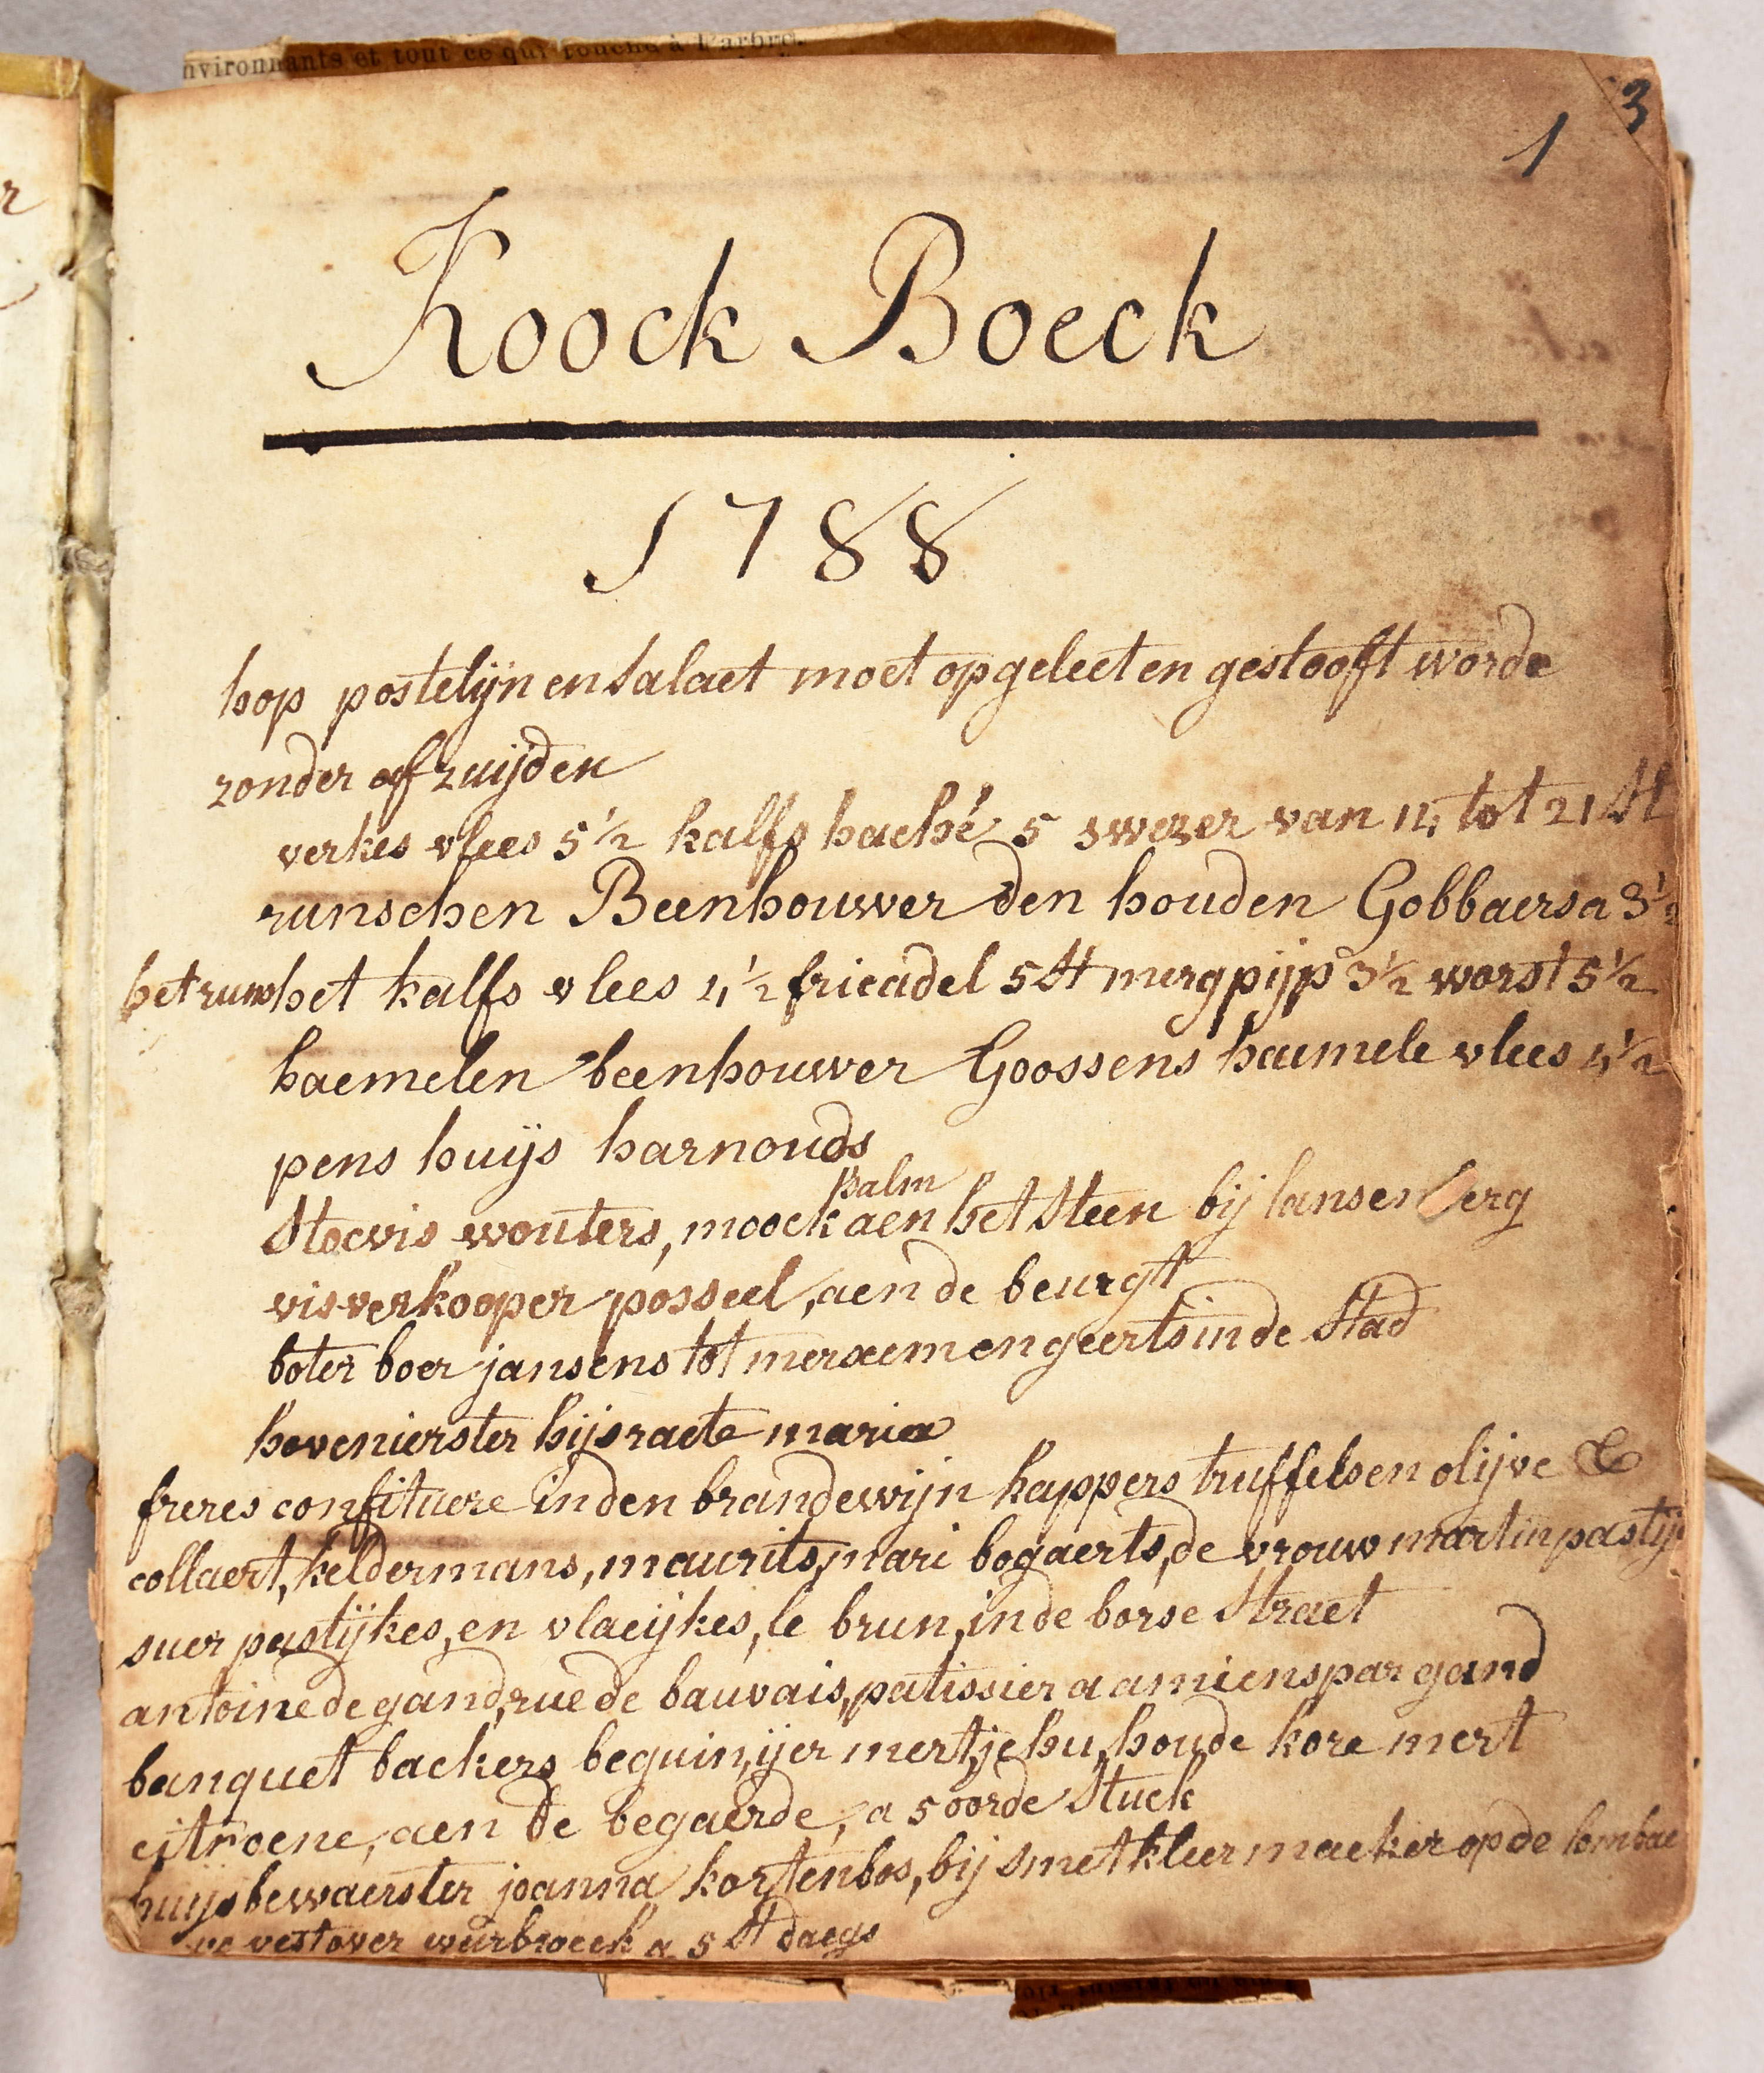 nvironnants et tout ce qui touche à l'arbre.
3
1
Koock Boeck
1788
hop postelijn en salaet moet opgeleet en gestooft worde
zonder af zuijden
verkes vlees 5 1/2 kalfs haché 5 swezer van 14 tot 21 st
runschen Beenhouwer den houden Gobbaers a 3 1/2
het runs het kalfs vlees 4 1/2 fricadel 5 st mergpijp 3 1/2 worst 5 1/2
haemelen beenhouwer Goossens haemele vlees 4 1/2
pens huijs harnouds
palm
Stocvis wouters, moock aen het Steen bij lansenberg
visverkooper posseel, aen de beurgt
boter boer jansens tot merxem en geerts in de Stad
hovenierster hijsraete maria
freres confituere in den brandewijn kappers truffels en olijve &
collaert, keldermans, maurits, mari bogaerts, de vrouw martin pastij
suer pastijkes, en vlaeijkes, le brun, in de borse Straet
antoine de gand, rue de bauvais, patissier a amiens par gand
banquet backers beguin, ijer mert, jehu, houde kore mert
citroene, aen de begaerde, a 5 oorde Stuck
huijsbewaerster joanna kortenbos, bij smet kleermaeker op de lombae
vest over weirbroeck a 5 st daegs